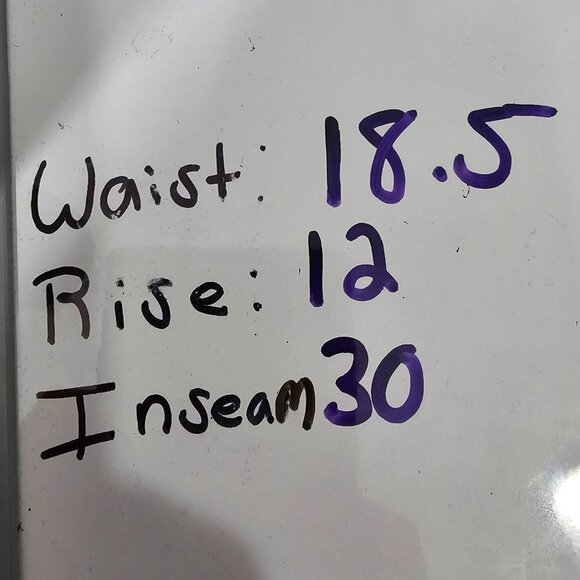 Waist: 18.5
Rise: 12
Inseam 30